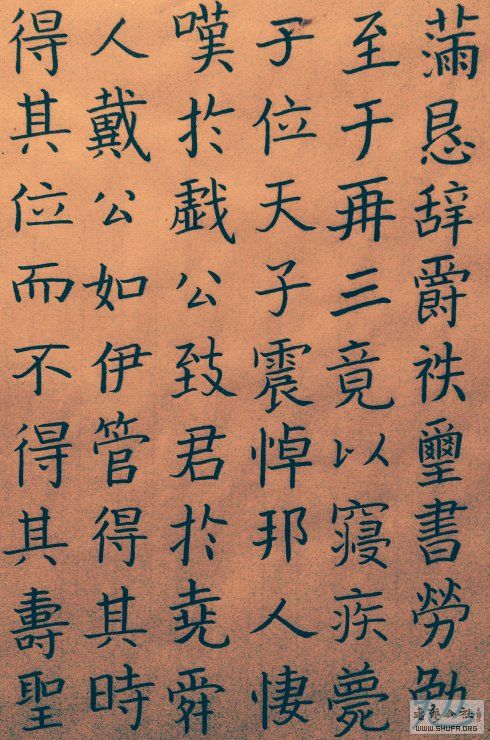 滿恳辞爵袟璽書勞勉
至于再三竟以寢疾薨
于位天子震悼邦人悽
嘆於戯公致君於堯舜
人戴公如伊管得其時
得其位而不得其壽聖
书艺公社
WWW.SHUFA.ORG